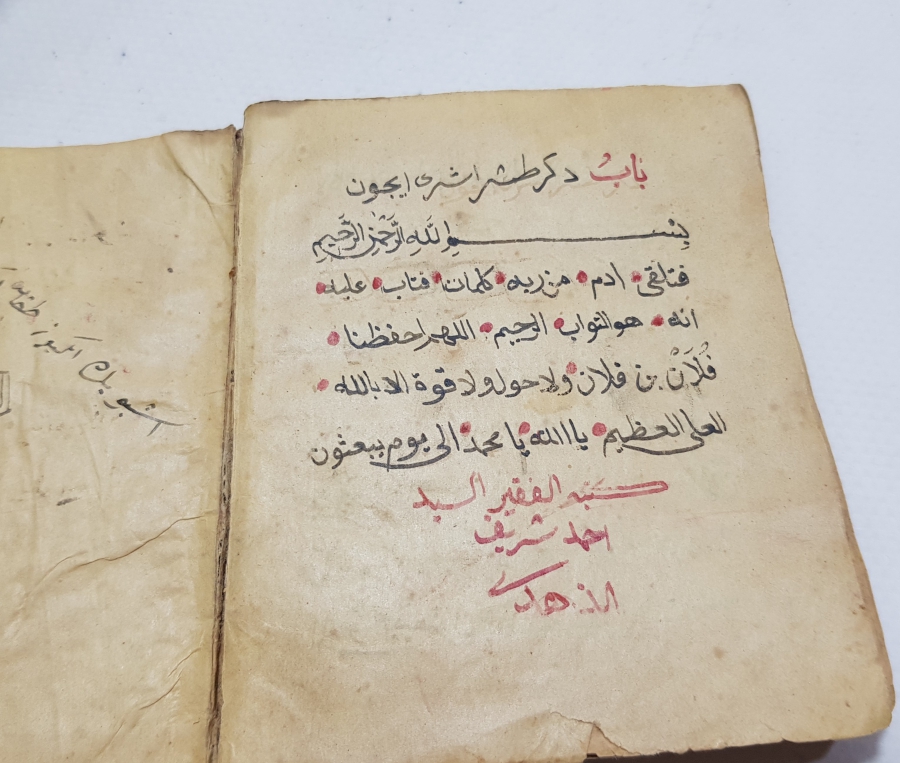 باب دكر طشر اشرى ايچون
بِسْمِ اللَّهِ الرَّحْمٰنِ الرَّحِيمِ
فتلقى ادم من ربه كلمات فتاب عليه
انه هو التواب الرحيم اللهم احفظنا
فُلَانْ بن فلان ولا حول ولا قوة الا بالله
العلى العظيم يا الله يا محمد الى يوم يبعثون
كتبه الفقير السيد
احمد شريف